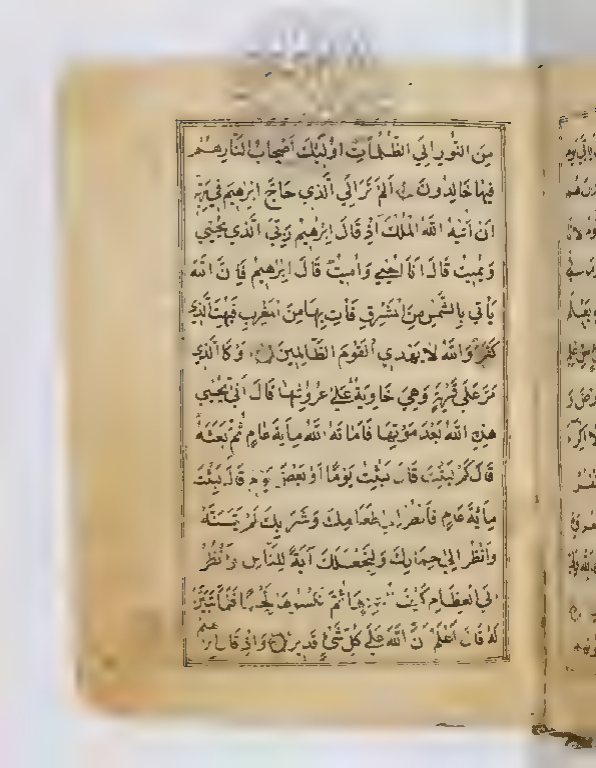 مِنَ النُّورِ اِلَي الظُّلُمَاتِ اوُلَئِكَ اَصْحَابُ النَّارِ هُمْ
فِيهَا خَالِدُونَ اَلَمْ تَرَ اِلَي الَّذِي حَاجَّ اِبْرٰهِيمَ فِي رَبِّهِ
اَنْ اٰتٰيهُ اللّٰهُ الْمُلْكَ اِذْ قَالَ اِبْرٰهِيمُ رَبِّيَ الَّذِي يُحْيِي
وَيُمِيتُ قَالَ اَنَا اُحْيِي وَاُمِيتُ قَالَ اِبْرٰهِيمُ فَاِنَّ اللّٰهَ
يَأْتِي بِالشَّمْسِ مِنَ الْمَشْرِقِ فَأْتِ بِهَا مِنَ الْمَغْرِبِ فَبُهِتَ الَّذِي
كَفَرَ وَاللّٰهُ لَا يَهْدِي الْقَوْمَ الظَّالِمِينَ اَوْ كَالَّذِي
مَرَّ عَلَي قَرْيَةٍ وَهِيَ خَاوِيَةٌ عَلَي عُرُوشِهَا قَالَ اَنّٰي يُحْيِي
هٰذِهِ اللّٰهُ بَعْدَ مَوْتِهَا فَاَمَاتَهُ اللّٰهُ مِأَيةَ عَامٍ ثُمَّ بَعَثَهُ
قَالَ كَمْ لَبِثْتَ قَالَ لَبِثْتُ يَوْمًا اَوْ بَعْضَ يَوْمٍ قَالَ بَلْ لَبِثْتَ
مِأَيةَ عَامٍ فَانْظُرْ اِلَي طَعَامِكَ وَشَرَابِكَ لَمْ يَتَسَنَّهْ
وَانْظُرْ اِلَي حِمَارِكَ وَلِنَجْعَلَكَ اٰيَةً لِلنَّاسِ وَانْظُرْ
اِلَي الْعِظَامِ كَيْفَ نُنْشِزُهَا ثُمَّ نَكْسُوهَا لَحْمًا فَلَمَّا تَبَيَّنَ
لَهُ قَالَ اَعْلَمُ اَنَّ اللّٰهَ عَلَي كُلِّ شَيْءٍ قَدِيرٌ وَاِذْ قَالَ اِبْرٰهِيمُ